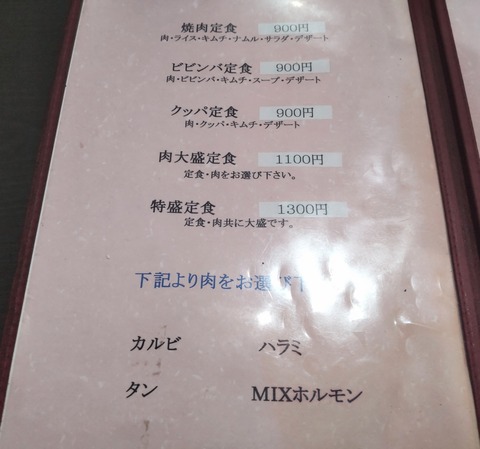 焼肉定食 900円
肉・ライス・キムチ・ナムル・サラダ・デザート
ビビンバ定食 900円
肉・ビビンバ・キムチ・スープ・デザート
クッパ定食 900円
肉・クッパ・キムチ・デザート
肉大盛定食 1100円
定食・肉をお選び下さい。
特盛定食 1300円
定食・肉共に大盛です。
下記より肉をお選び下
カルビ ハラミ
タン MIXホルモン